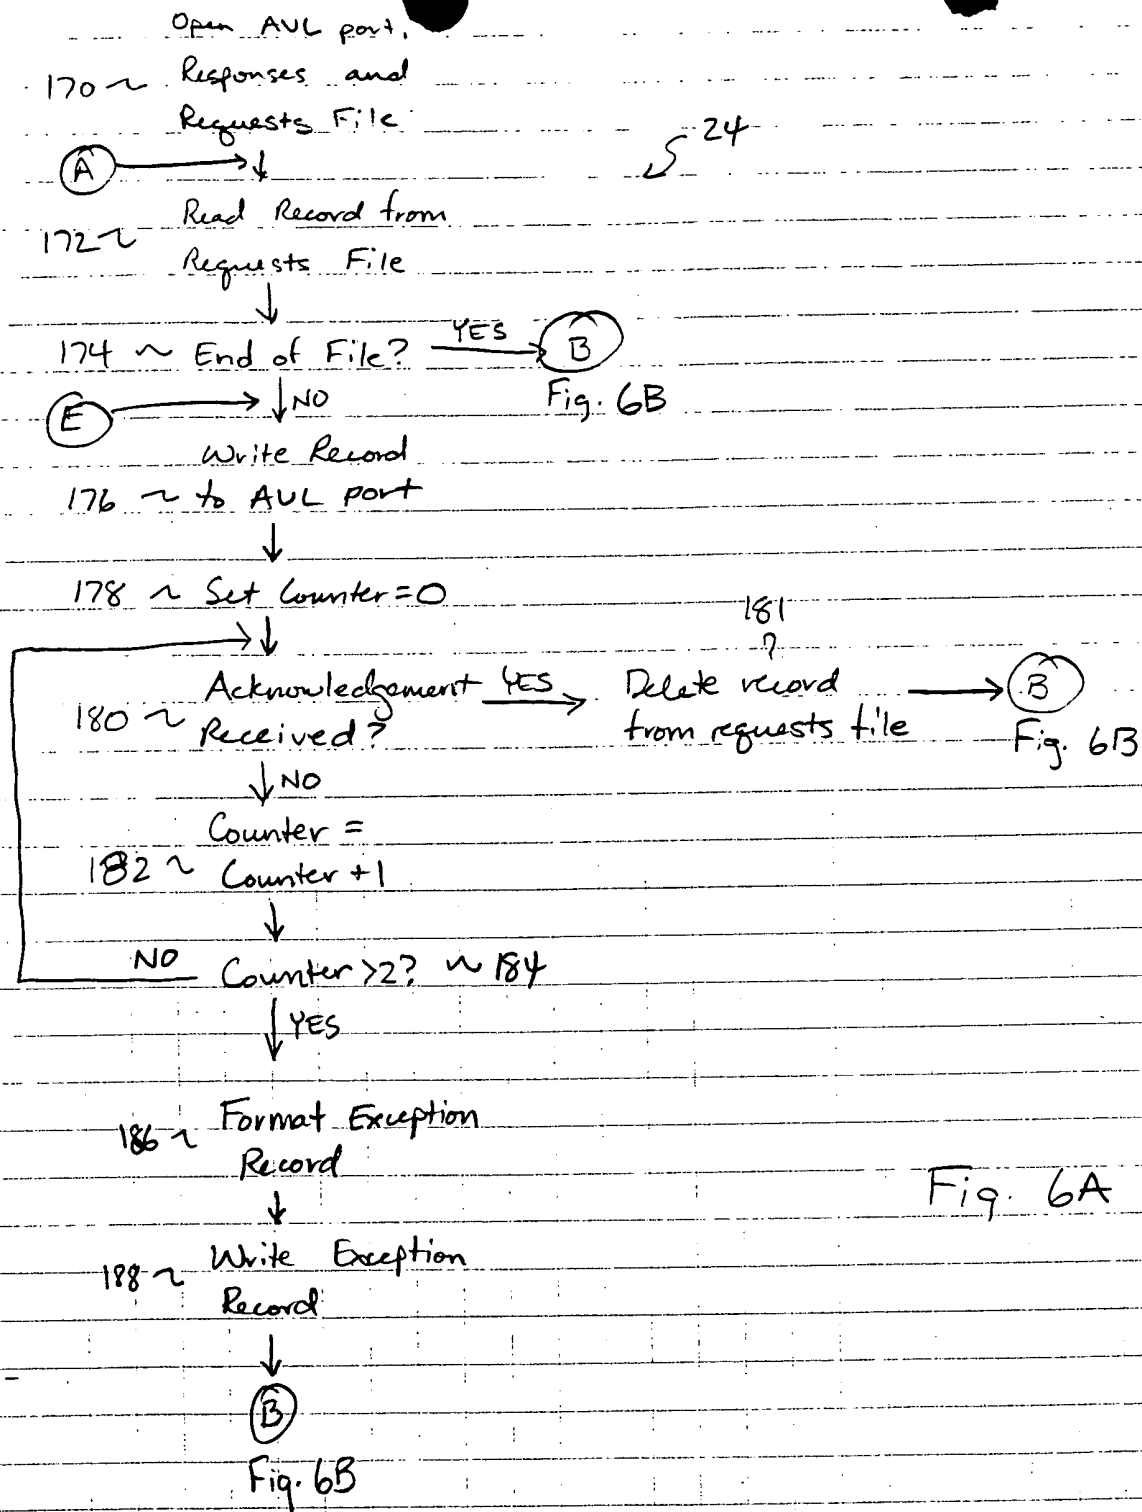 Open AVL port,
170 ~ Responses and
Requests File
A
24
Read Record from
172 ~
Requests File
174 ~ End of File? YES B
E NO Fig. 6B
Write Record
176 ~ to AVL port
178 ~ Set Counter=0
181
Acknowledgement YES Delete record B
180 ~ Received? from requests file Fig. 6B
NO
Counter =
182 ~ Counter +1
NO Counter >2? ~ 184
YES
186 ~ Format Exception
Record
Fig. 6A
188 ~ Write Exception
Record
B
Fig. 6B